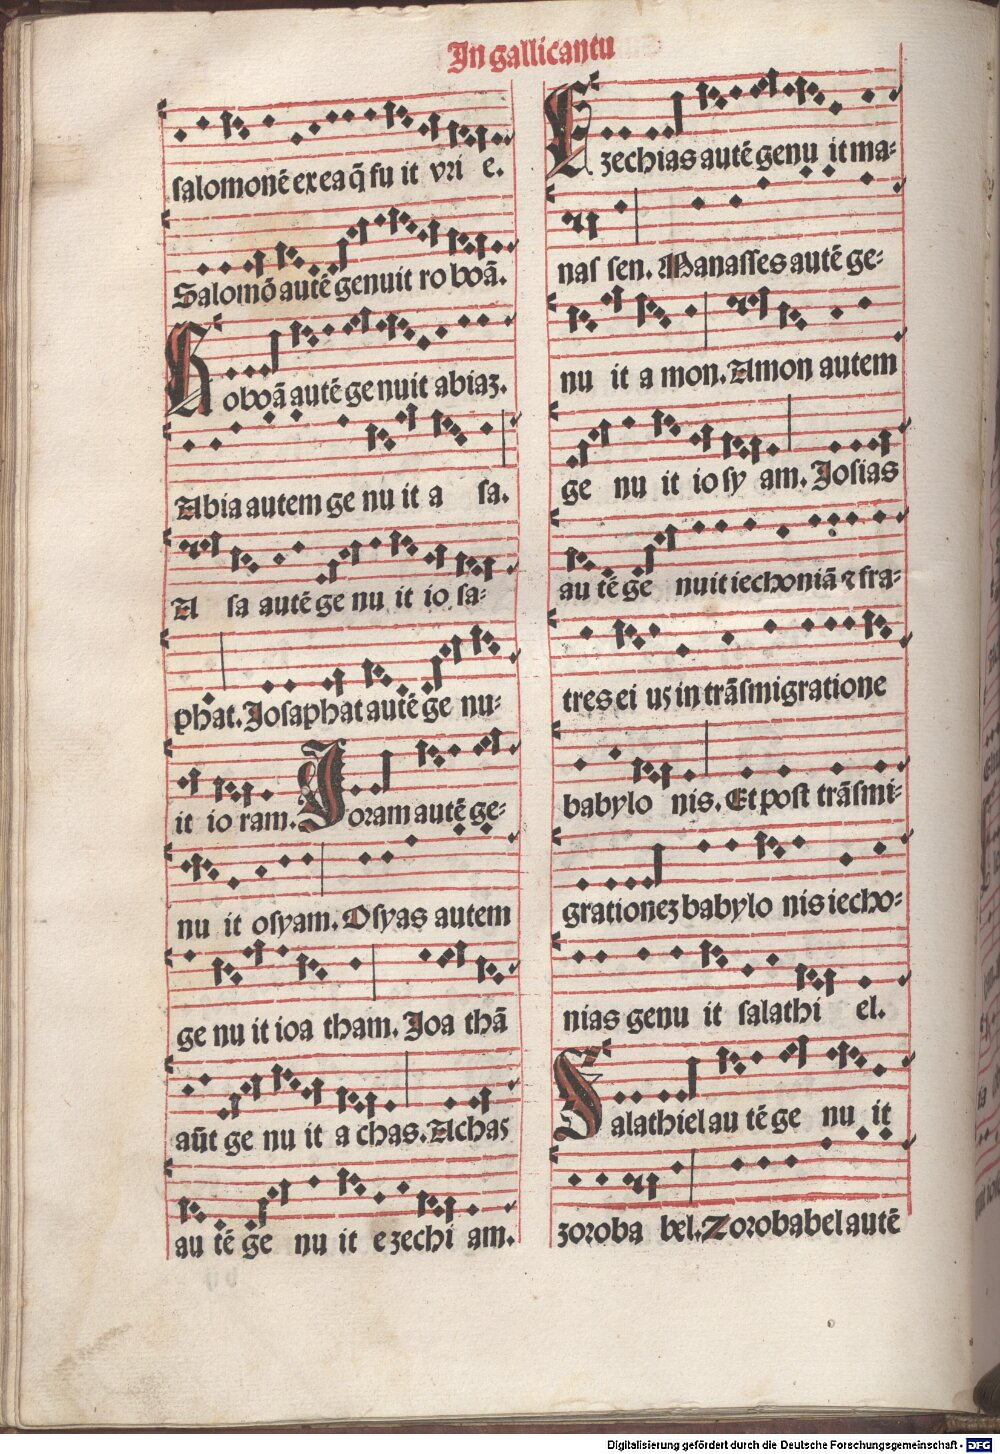 In gallicantu
salomonē ex ea q̄ fu it vri e.
Salomō autē genuit ro boā.
Roboā autē ge nuit abiaz.
Abia autem ge nu it a sa.
A sa autē ge nu it io sa-
phat. Josaphat autē ge nu-
it io ram. Joram autē ge-
nu it osyam. Osyas autem
ge nu it ioa tham. Joa thā
aūt ge nu it a chas. Achas
au tē ge nu it e zechi am.
Ezechias autē genu it ma-
nas sen. Manasses autē ge-
nu it a mon. Amon autem
ge nu it io sy am. Josias
au tē ge nuit iechoniā ⁊ fra-
tres ei us in trāsmigratione
babylo nis. Et post trāsmi-
grationez babylo nis iecho-
nias genu it salathi el.
Salathiel au tē ge nu it
zoroba bel. Zorobabel autē
Digitalisierung gefördert durch die Deutsche Forschungsgemeinschaft - DFG